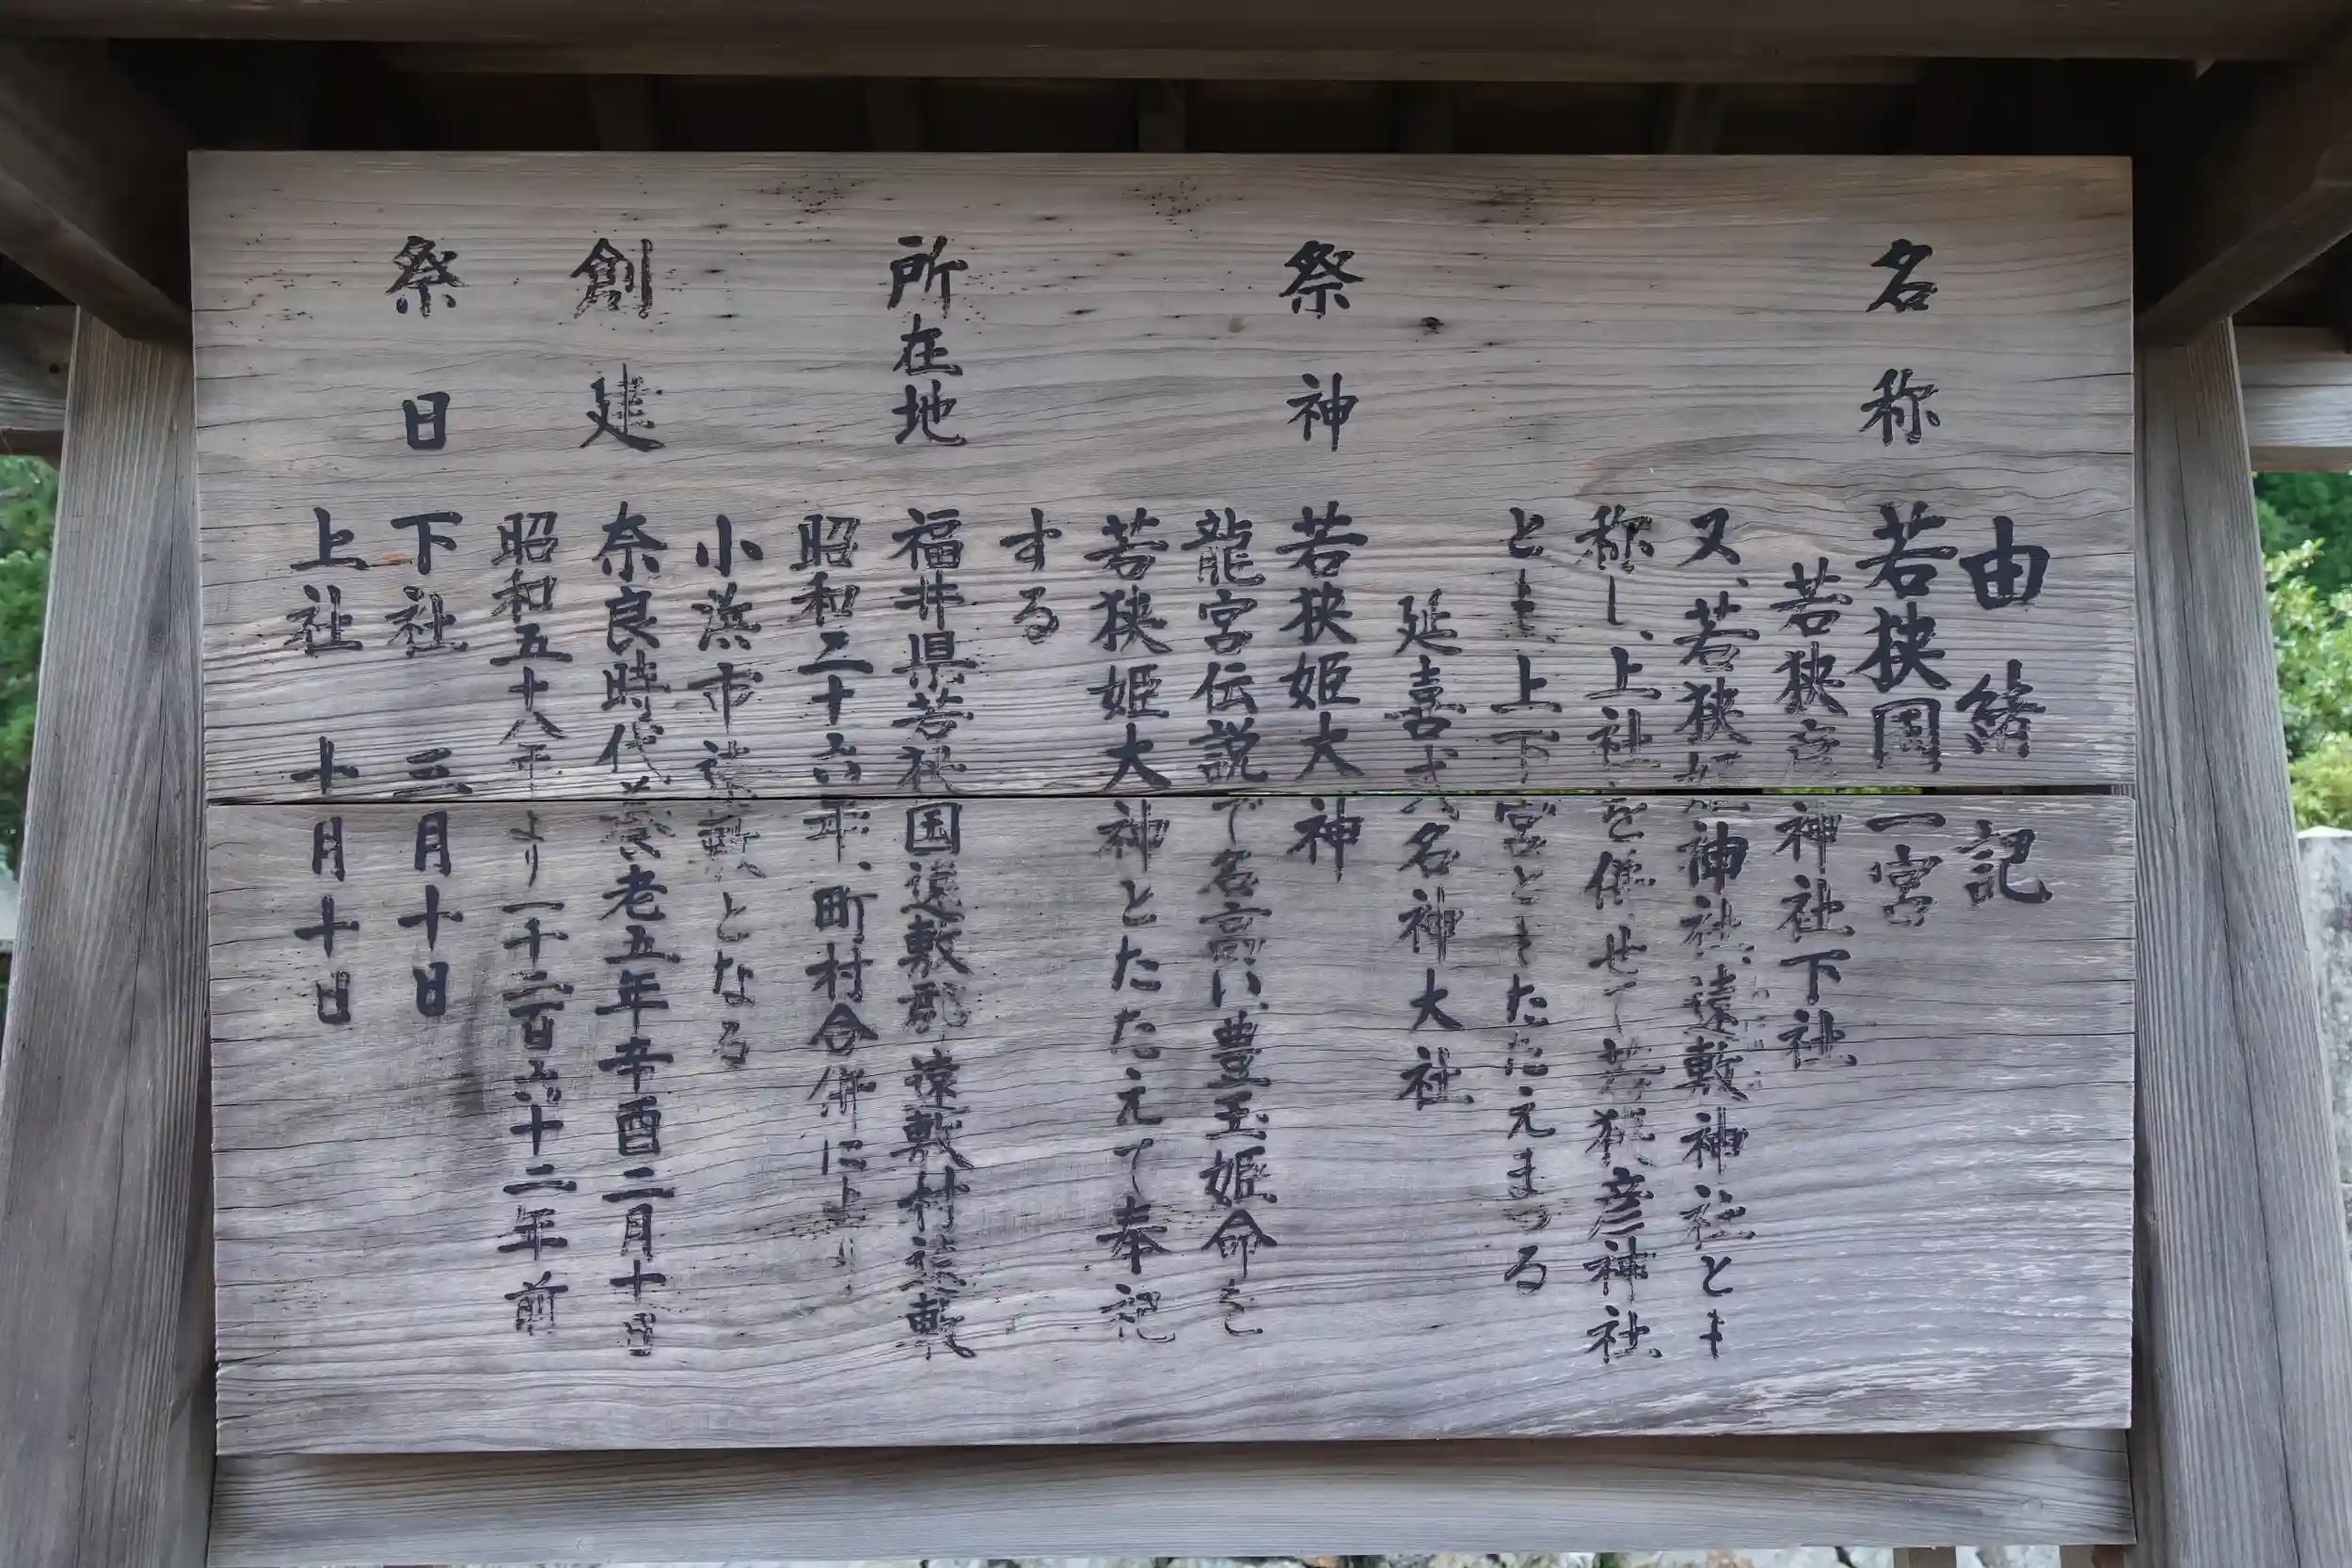 由緒記
名称 若狭国一宮
若狭彦神社下社
又、若狭姫神社、遠敷神社とも
称し、上社を併せて若狭彦神社
とも上下宮としたたえまつる
延喜式名神大社
祭神 若狭姫大神
龍宮伝説で名高い豊玉姫命を
若狭姫大神とたたえて奉祀
する
所在地 福井県若狭国遠敷郡遠敷村遠敷
昭和二十六年、町村合併により、
小浜市遠敷となる
創建 奈良時代養老五年辛酉二月十日
昭和五十八年より一千二百六十二年前
祭日 下社 三月十日
上社 十月十日